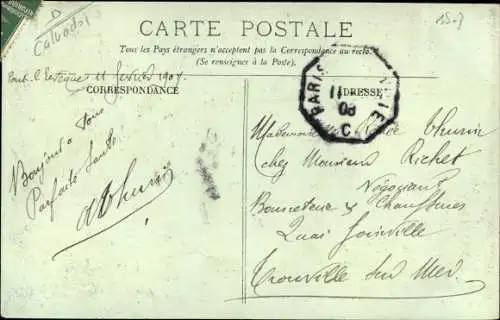 D
Calvados
CARTE POSTALE
Tous les Pays étrangers n'acceptent pas la Correspondance au recto.
(Se renseigner à la Poste).
Pont l'Evêque 11 février 190
CORRESPONDANCE
ADRESSE
PARIS
11
08
C
Bonjour à tous
Parfaite Santé
AThurin
Mademoiselle Thurin
Chez Monsieur Richet
Négociant
Bonneterie & Chaussures
Quai Joinville
Trouville sur Mer